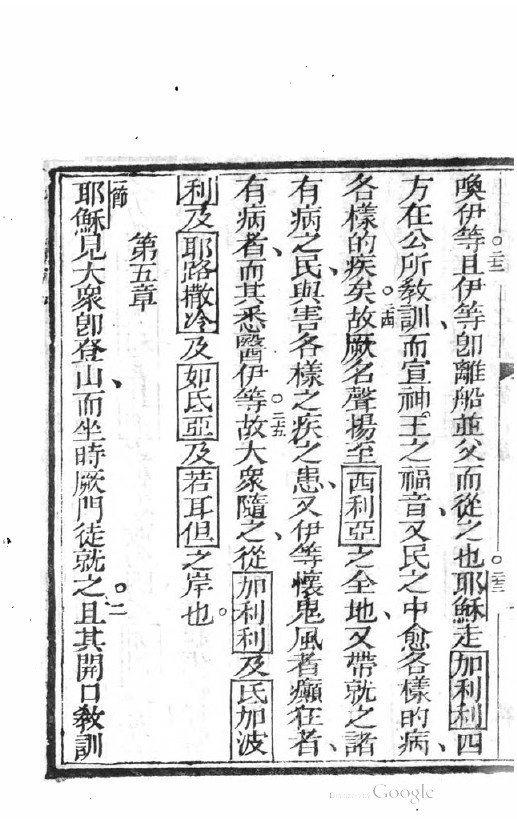 喚伊等。二二且伊等卽離船並父而從之也。二三耶穌走加利利四
方在公所敎訓、而宣神王之福音、又民之中愈各樣的病、
各樣的疾矣。二四故厥名聲揚至西利亞之全地、又帶就之諸
有病之民、與害各樣之疾之患、又伊等懷鬼風者癲狂者、
有病者、而其悉醫伊等。二五故大衆隨之、從加利利及氐加波
利及耶路撒冷及如氐亞及若耳但之岸也。
第五章
一節耶穌見大衆卽登山、而坐時厥門徒就之。二且其開口敎訓
Digitized by Google